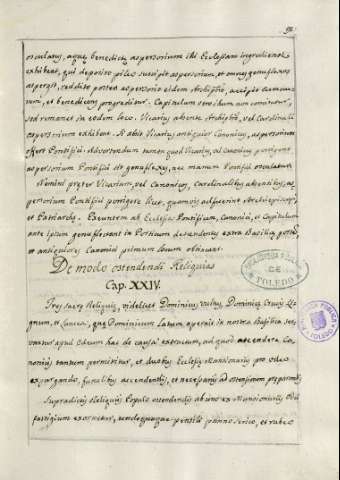 osculatus, aquæ benedictæ aspersorium illi Ecclesiam ingredienti
exhibeat, qui deposito pileo suscipit aspersorium, et omnes genuflexos
aspergit, reddito postea aspersorio eidem Archipbro, accipit
rum, et benedicens progreditur. Capitulum non
sed remanet in eodem loco. Vicarius absente Archipbro, vel Cardinali
aspersorium exhibeat. Si absit Vicarius antiquior Canonicus, aspersorium
offert Pontifici. Advertendum tamen quod Vicarius, vel canonicus porrigens
aspersorium Pontifici sit genuflexus, nec manum Pontificis osculatur
Nemini præter Vicarium, vel Canonicum, Cardinalibus absentibus, as
persorium Pontifici porrigere licet, quamvis adfuerint Archiepiscopi,
et Patriarchæ. Exeuntem ab Ecclesia Pontificem, Canonici, et Capitulum
ante ipsum genuflectant in Porticum descendentes extra Basilicæ portam
et antiquiores Canonici primum locum obtineant.
De modo ostendendi Reliquias
Cap. XXIV.
Tres sacræ Reliquiæ, videlicet Dominicus vultus, Dominicæ Crucis Li
gnum, et Lancea, quæ Dominicum Latus aperuit in nostra Basilica ser
vantur apud Chorum hac de causa extructum, ad quod ascendere Ca
nonicis tantum permittitur, et duobus Ecclesiæ Mansionariis pro
expurgando, funalibus accendentibus, et necessariis ad ostensionem preparandis
Supradictis Reliquiis Populo ostendendis ab uno ex Mansionariis
fastigium exornetur, pensili panno serico, et rubeo
BIBLIOTECA PUBLICA
DE
TOLEDO
BIBLIOTECA PUBLICA
TOLEDO